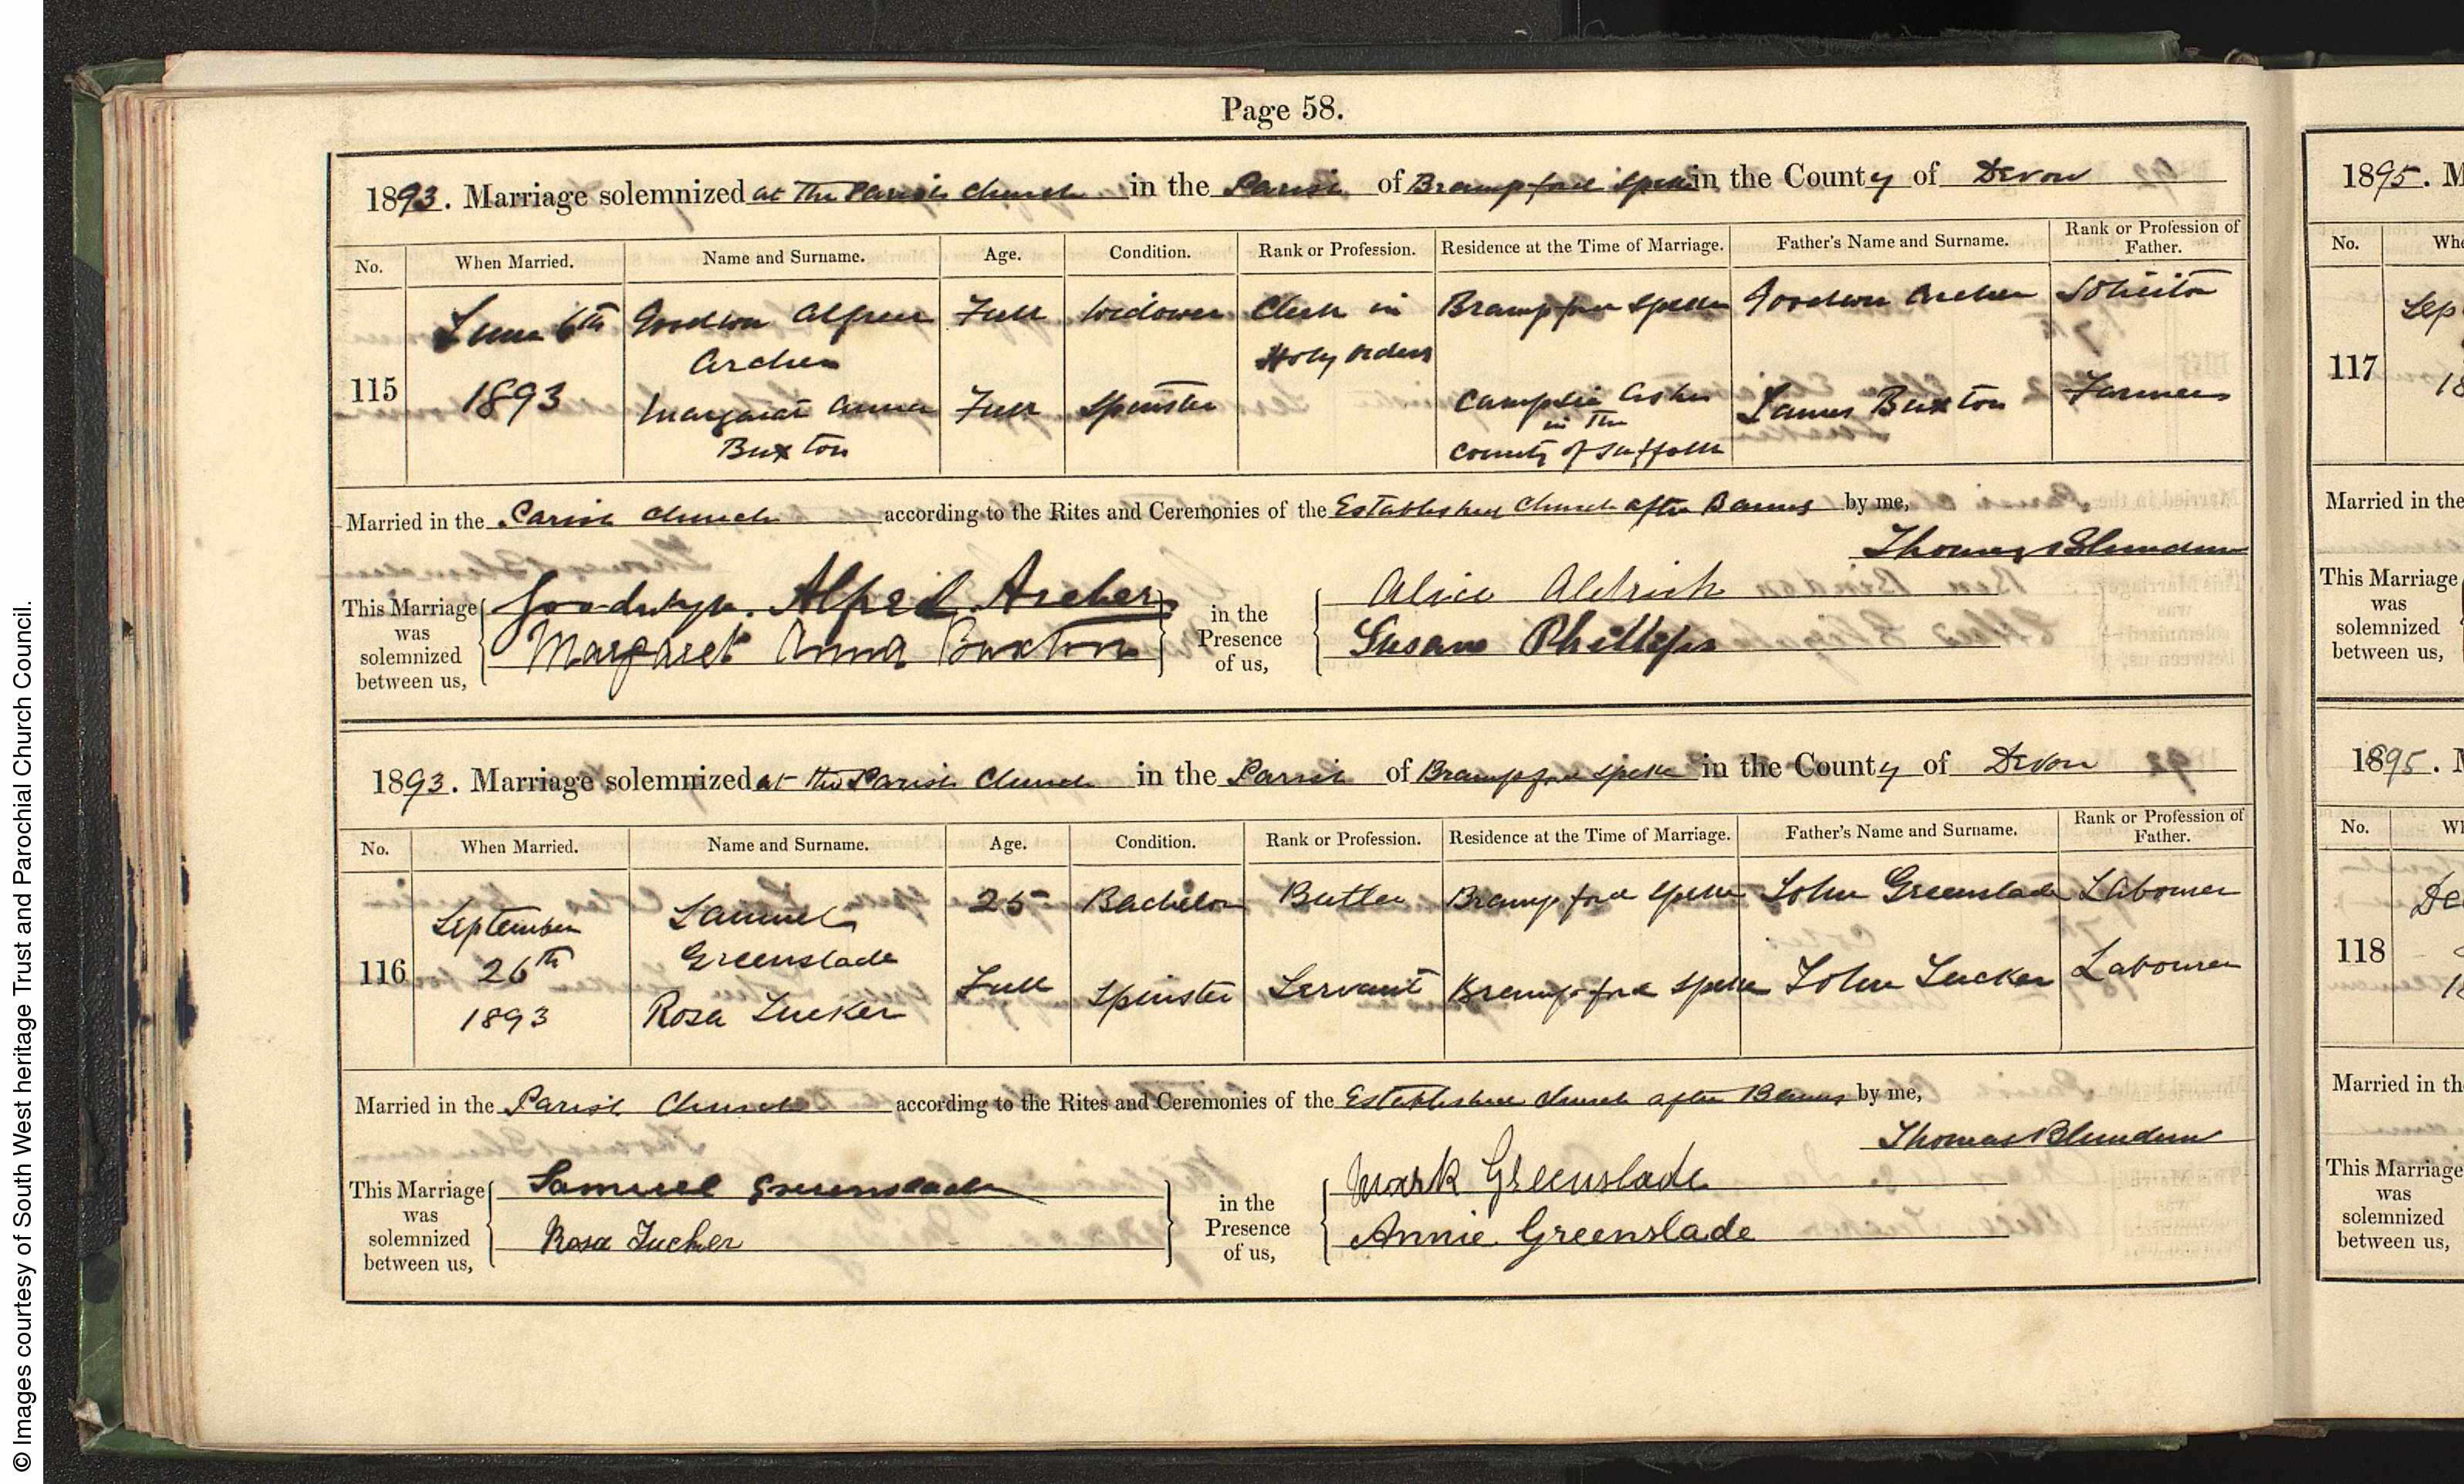 Page 58.
1893. Marriage solemnized at the Parish Church in the Parish of Brampford Speke in the County of Devon
No. When Married. Name and Surname. Age. Condition. Rank or Profession. Residence at the Time of Marriage. Father's Name and Surname. Rank or Profession of Father.
115 June 6th 1893 Goodwin Alfred Archer Full Widower Clerk in Holy Orders Brampford Speke Goodwin Archer Solicitor
Margaret Anna Buxton Full Spinster Campsie Ashe in the County of Suffolk James Buxton Farmer
Married in the Parish Church according to the Rites and Ceremonies of the Established Church after Banns by me,
Thomas Blundun
This Marriage was solemnized between us, Goodwyn Alfred Archer Margaret Anna Buxton in the Presence of us, Alice Aldrich Susan Phillips
1893. Marriage solemnized at the Parish Church in the Parish of Brampford Speke in the County of Devon
No. When Married. Name and Surname. Age. Condition. Rank or Profession. Residence at the Time of Marriage. Father's Name and Surname. Rank or Profession of Father.
116 September 26th 1893 Samuel Greenslade 25 Bachelor Butler Brampford Speke John Greenslade Labourer
Rosa Tucker Full Spinster Servant Brampford Speke John Tucker Labourer
Married in the Parish Church according to the Rites and Ceremonies of the Established Church after Banns by me,
Thomas Blundun
This Marriage was solemnized between us, Samuel Greenslade Rosa Tucker in the Presence of us, Mark Greenslade Annie Greenslade
1895.
No.
117
Married in the
This Marriage was solemnized between us,
1895.
No.
118
Married in th
This Marriage was solemnized between us,
© Images courtesy of South West heritage Trust and Parochial Church Council.